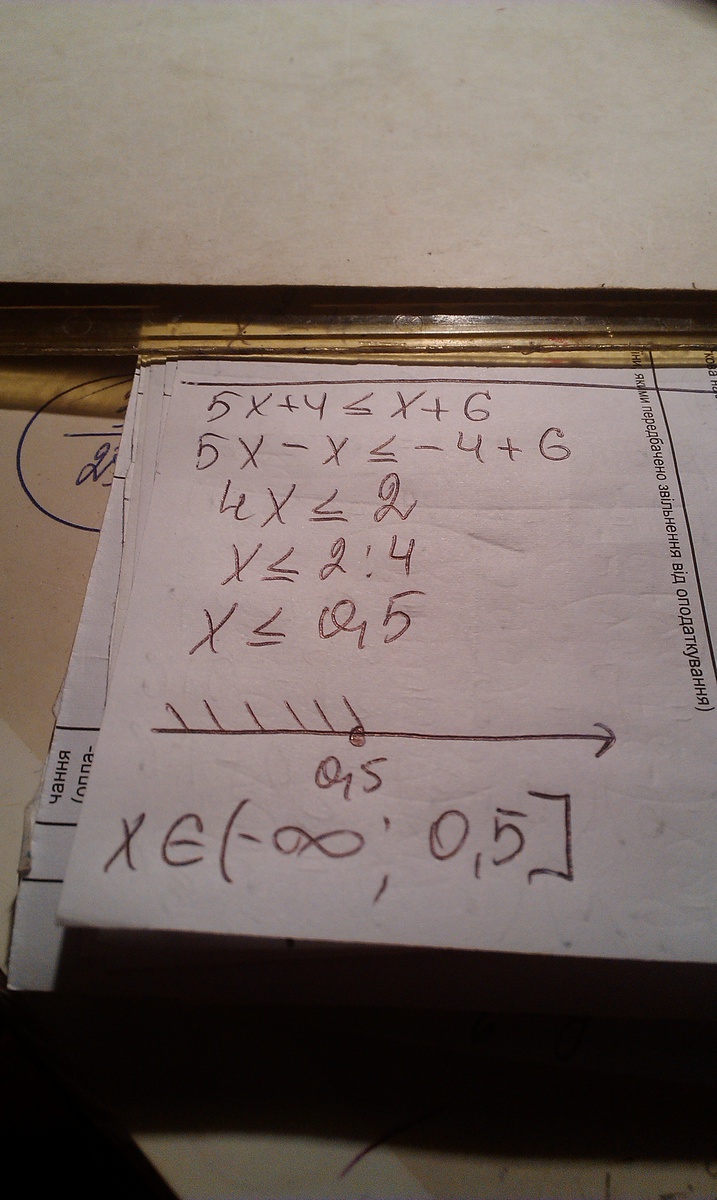 5x+4 ≤ x+6
5x - x ≤ -4+6
4x ≤ 2
x ≤ 2:4
x ≤ 0,5
0,5
x ∈ (-∞; 0,5]
яким передбачено звільнення від оподаткування)
чання
(опла-